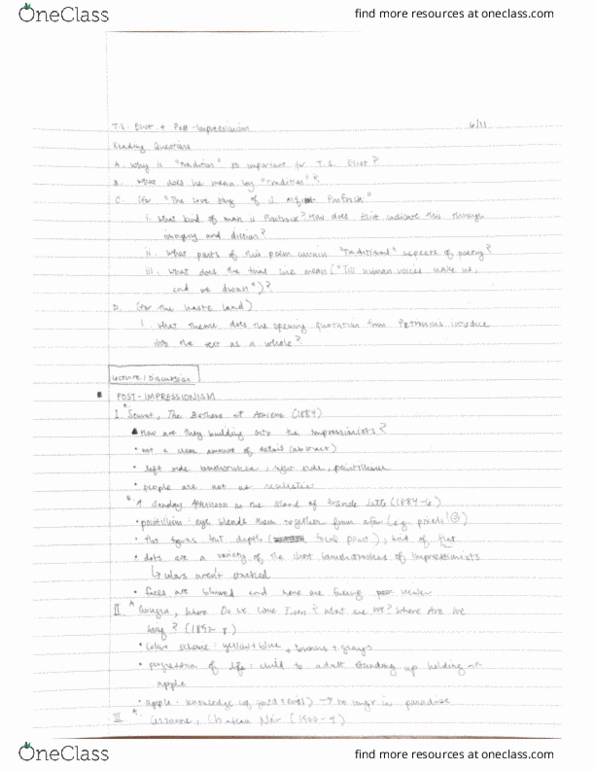 OneClass
find more resources at oneclass.com
T.S. Eliot + Post-Impressionism 6/11
Reading Questions
A. Why is "tradition" so important for T.S. Eliot?
B. What does he mean by "tradition"?
C. (for "The Love Song of J. Alf Prufrock"
i. What kind of man is Prufrock? How does Eliot indicate this through
imagery and diction?
ii. What parts of this poem contain "traditional" aspects of poetry?
iii. What does the final line mean ("Till human voices wake us,
and we drown")?
D. (for the Waste Land)
i. What theme does the opening quotation from Petronius introduce
into the text as a whole?
Lecture/Discussion
POST-IMPRESSIONISM
I. Seurat, The Bathers at (1884)
How are they building onto the impressionists?
• not a clear amount of detail (abstract)
• left side brushstrokes, right side, pointillism
• people are not as realistic
A Sunday Afternoon on the Island of Grande Jatte (1884-6)
• pointillism: eye blends them together from afar (e.g. pixels!)
• flat figures but depth ( focal point), kind of flat
• dots are a variety of the short brushstrokes of impressionists
↳ colors aren't
• faces are blurred and none are facing viewer
II. Gauguin, Where Do we Come From? What are we? Where Are We
Going? (1897-8)
• color scheme: yellow + blue, browns + grays
• progression of life: child to adult standing up holding an
apple
• apple - knowledge (of good + evil) → no longer in paradise
III. Cezanne, Chateau Noir (1900-4)
OneClass
find more resources at oneclass.com